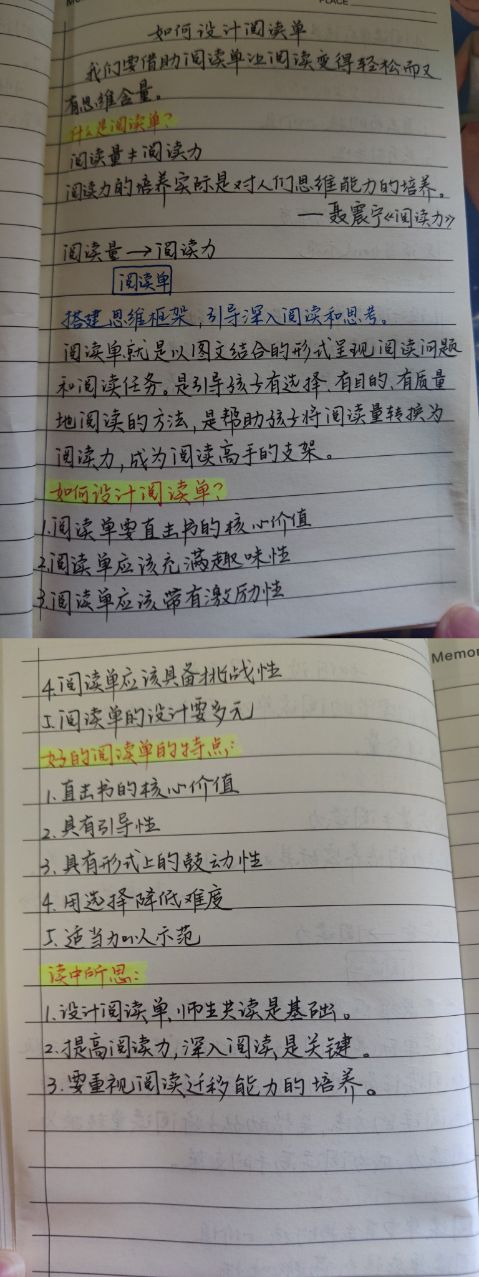 PLACE
如何设计阅读单
我们要借助阅读单让阅读变得轻松而又
有思维含量。
什么是阅读单?
阅读量≠阅读力
阅读力的培养实际是对人们思维能力的培养。
——聂震宁《阅读力》
阅读量→阅读力
阅读单
搭建思维框架,引导深入阅读和思考。
阅读单就是以图文结合的形式呈现阅读问题
和阅读任务。是引导孩子有选择、有目的、有质量
地阅读的方法,是帮助孩子将阅读量转换为
阅读力,成为阅读高手的支架。
如何设计阅读单?
1.阅读单要直击书的核心价值
2.阅读单应该充满趣味性
3.阅读单应该带有激励性
Memo
4.阅读单应该具备挑战性
5.阅读单的设计要多元
好的阅读单的特点:
1.直击书的核心价值
2.具有引导性
3.具有形式上的鼓动性
4.用选择降低难度
5.适当加以示范
读中所思:
1.设计阅读单,师生共读是基础。
2.提高阅读力,深入阅读是关键。
3.要重视阅读迁移能力的培养。